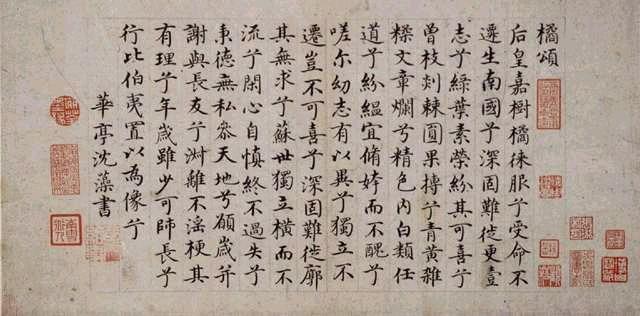 橘頌
后皇嘉樹橘徠服兮受命不
遷生南國兮深固難徙更壹
志兮緑葉素榮紛其可喜兮
曾枝剡棘圓果摶兮青黄雜
糅文章爛兮精色内白類任
道兮紛緼宜脩姱而不醜兮
嗟尔幼志有以異兮獨立不
遷豈不可喜兮深固難徙廓
其無求兮蘇世獨立橫而不
流兮閉心自慎終不過失兮
秉德無私叅天地兮願歲并
謝與長友兮淑離不淫梗其
有理兮年歲雖少可師長兮
行比伯夷置以為像兮
華亭沈藻書